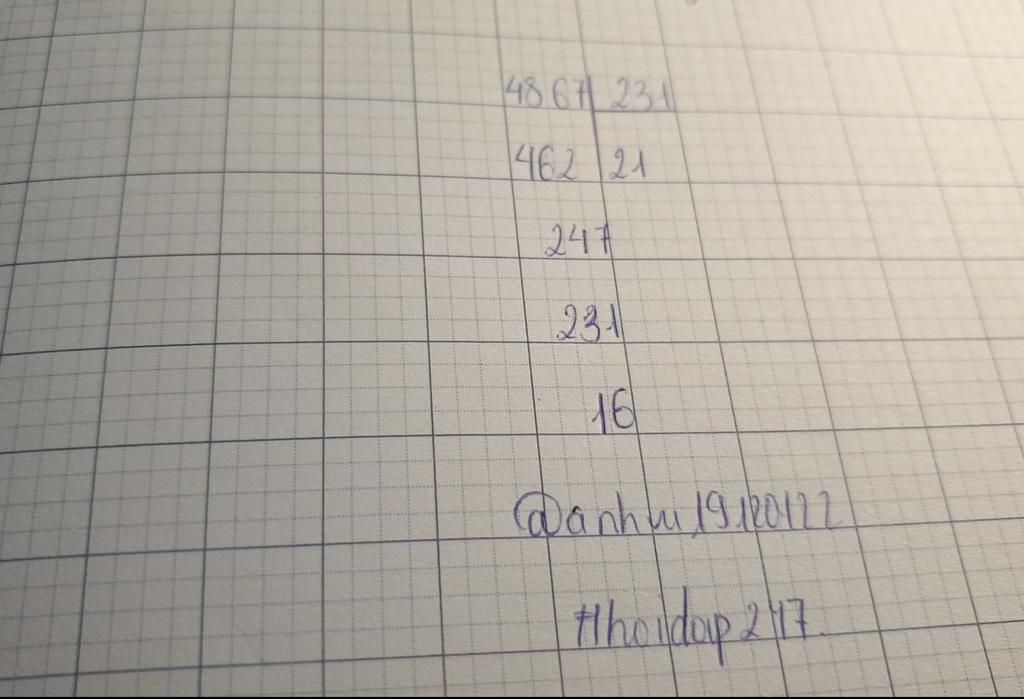 4867 231
462 21
247
231
16
@anhuu19120122
#hoidap247